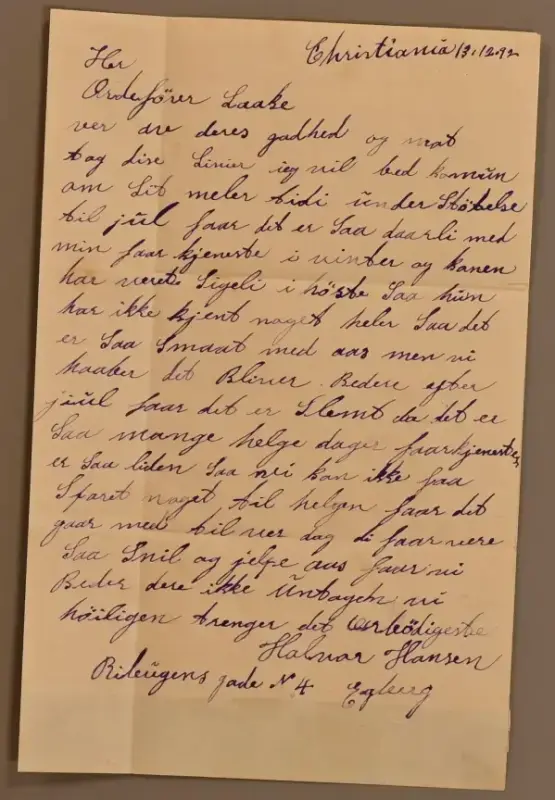 Christiania 13.12.92
Her
Ordefører Laake
ver av deres godhed og mot
tag dise Linier ieg vil bed komun
om Lit meler tidi under Støtelse
til jül faar det er Saa daarli med
min faar kjeneste i vinter og konen
har veret Sigeli i høste Saa hün
har ikke kjent noget heler Saa det
er Saa Smaat med aas men vi
haaber det Bliver Bedere efter
jüül faar det er Slemt da det er
Saa mange helge dager faarkjeneste
er Saa liden Saa vi kan ikke faa
Sparet noget til helgen faar det
gaar med til ver dag di faar vere
Saa Snil og jelpe aas faar vi
Beder dere ikke üntagen vi
høiligen trenger det erbødigeste
Halvar Hansen
gade N 4 Egberg